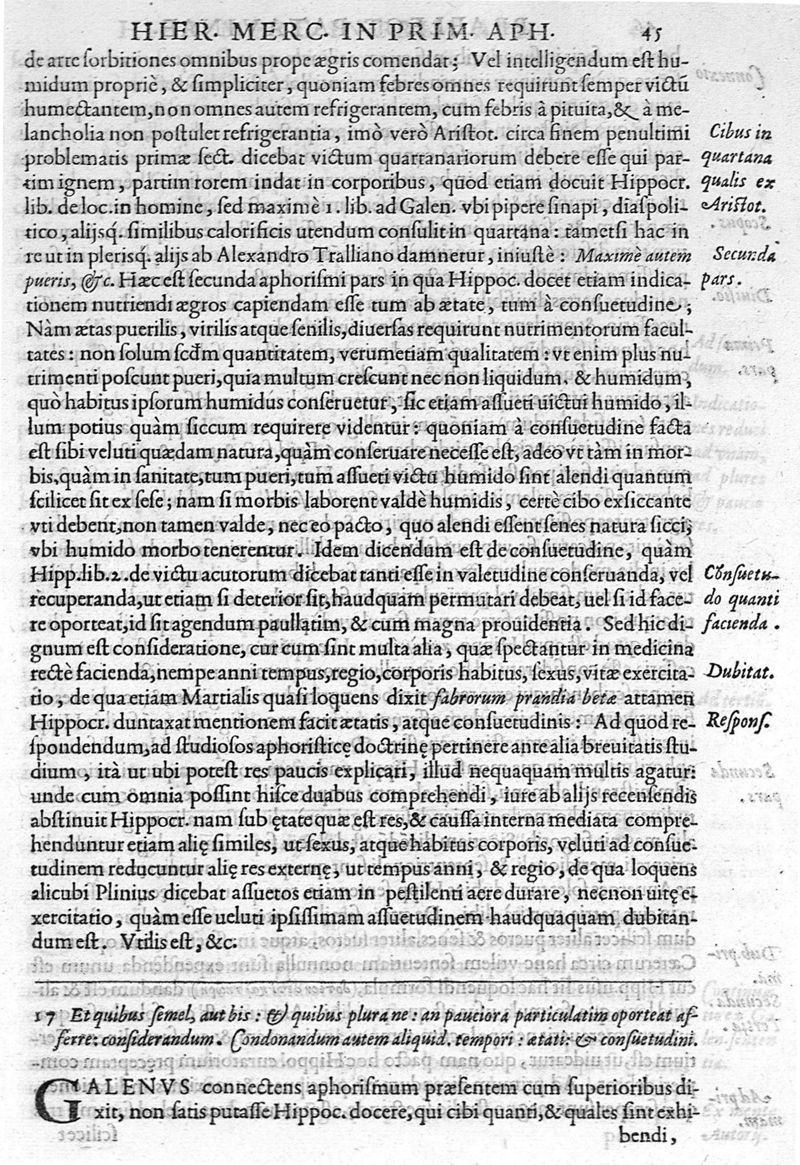 HIER. MERC. IN PRIM. APH. 45
de arte ſorbitiones omnibus prope ægris comendat; Vel intelligendum eſt hu-
midum propriè, & ſimpliciter, quoniam febres omnes requirunt ſemper victũ
humectantem, non omnes autem refrigerantem, cum febris à pituita, & à me-
lancholia non poſtulet refrigerantia, imò verò Ariſtot. circa finem penultimi
problematis primæ ſect. dicebat victum quartanariorum debere eſſe qui par-
tim ignem, partim rorem indat in corporibus, quod etiam docuit Hippocr.
lib. de loc. in homine, ſed maximè 1. lib. ad Galen. vbi pipere ſinapi, diaſpoli-
tico, alijsq́. ſimilibus calorificis utendum conſulit in quartana: tametſi hac in
re ut in pleriſq́. alijs ab Alexandro Tralliano damnetur, iniuſtè: Maximè autem
pueris, &c. Hæc eſt ſecunda aphoriſmi pars in qua Hippoc. docet etiam indica-
tionem nutriendi ægros capiendam eſſe tum ab ætate, tum à conſuetudine;
Nàm ætas puerilis, virilis atque ſenilis, diuerſas requirunt nutrimentorum facul-
tates: non ſolum ſcd̃m quantitatem, verumetiam qualitatem: vt enim plus nu-
trimenti poſcunt pueri, quia multum creſcunt nec non liquidum. & humidum,
quò habitus ipſorum humidus conſeruetur, ſic etiam aſſueti uictui humido, il-
lum potius quàm ſiccum requirere videntur: quoniam à conſuetudine facta
eſt ſibi veluti quædam natura, quàm conſeruare neceſſe eſt, adeo vt tàm in mor-
bis, quàm in ſanitate, tum pueri, tum aſſueti victu humido ſint alendi quantum
ſcilicet ſit ex ſeſe; nam ſi morbis laborent valdè humidis, certè cibo exſiccante
vti debent, non tamen valde, nec eo pacto, quo alendi eſſent ſenes natura ſicci,
vbi humido morbo tenerentur. Idem dicendum eſt de conſuetudine, quàm
Hipp. lib. 2. de victu acutorum dicebat tanti eſſe in valetudine conſeruanda, vel
recuperanda, ut etiam ſi deterior ſit, haudquam permutari debeat, uel ſi id face-
re oporteat, id ſit agendum paullatim, & cum magna prouidentia. Sed hic di-
gnum eſt conſideratione, cur cum ſint multa alia, quæ ſpectantur in medicina
rectè facienda, nempe anni tempus, regio, corporis habitus, ſexus, vitæ exercita-
tio, de qua etiam Martialis quaſi loquens dixit fabrorum prandia betæ attamen
Hippocr. duntaxat mentionem facit ætatis, atque conſuetudinis: Ad quod re-
ſpondendum, ad ſtudioſos aphoriſticę doctrinę pertinere ante alia breuitatis ſtu-
dium, ità ut ubi poteſt res paucis explicari, illud nequaquam multis agatur:
unde cum omnia poſſint hiſce duabus comprehendi, iure ab alijs recenſendis
abſtinuit Hippocr. nam ſub ętate quæ eſt res, & cauſſa interna mediata compre-
henduntur etiam alię ſimiles, ut ſexus, atque habitus corporis, veluti ad conſue-
tudinem reducuntur alię res externę, ut tempus anni, & regio, de qua loquens
alicubi Plinius dicebat aſſuetos etiam in peſtilenti aere durare, necnon uitę e-
xercitatio, quàm eſſe ueluti ipſiſſimam aſſuetudinem haudquaquam, dubitan-
dum eſt. Vtilis eſt, &c.
Cibus in
quartana
qualis ex
Ariſtot.
Secunda
pars.
Cõſuetu-
do quanti
facienda.
Dubitat.
Reſponſ.
17 Et quibus ſemel, aut bis: & quibus plura ne: an pauciora particulatim oporteat af-
ferre: conſiderandum. Condonandum autem aliquid. tempori: ætati: & conſuetudini.
GALENVS connectens aphoriſmum præſentem cum ſuperioribus di-
xit, non ſatis putaſſe Hippoc. docere, qui cibi quanti, & quales ſint exhi-
bendi,